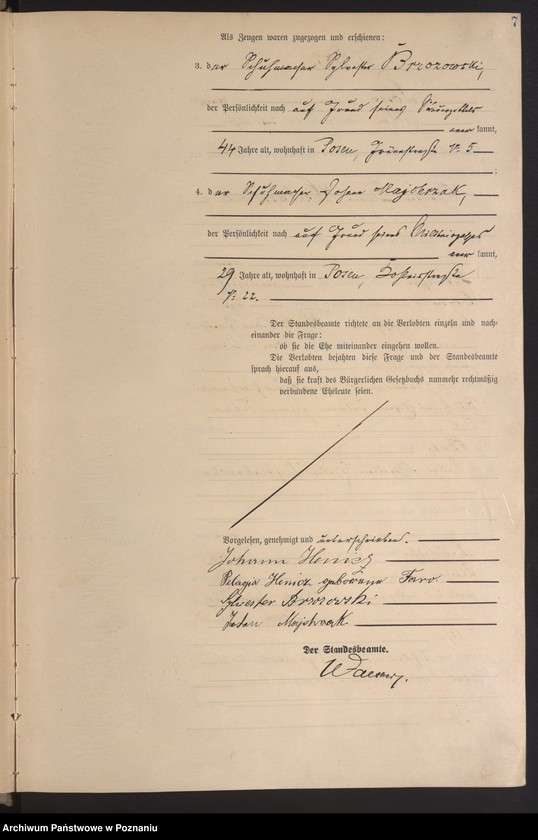 7
Als Zeugen waren zugezogen und erschienen:
3. der Schuhmacher Sylvester Brzozowski,
der Persönlichkeit nach auf Grund seines
kannt,
44 Jahre alt, wohnhaft in Posen, No 5
4. der Schuhmacher Johann Majchrzak,
der Persönlichkeit nach auf Grund seines Militairpasses
kannt,
29 Jahre alt, wohnhaft in Posen,
No 22.
Der Standesbeamte richtete an die Verlobten einzeln und nach-
einander die Frage:
ob sie die Ehe miteinander eingehen wollen.
Die Verlobten bejahten diese Frage und der Standesbeamte
sprach hierauf aus,
daß sie kraft des Bürgerlichen Gesetzbuchs nunmehr rechtmäßig
verbundene Eheleute seien.
Vorgelesen, genehmigt und unterschrieben.
Johann Henicz
Pelagia Henicz geborene
Sylvester Brzozowski
Majchrzak
Der Standesbeamte.
Archiwum Państwowe w Poznaniu